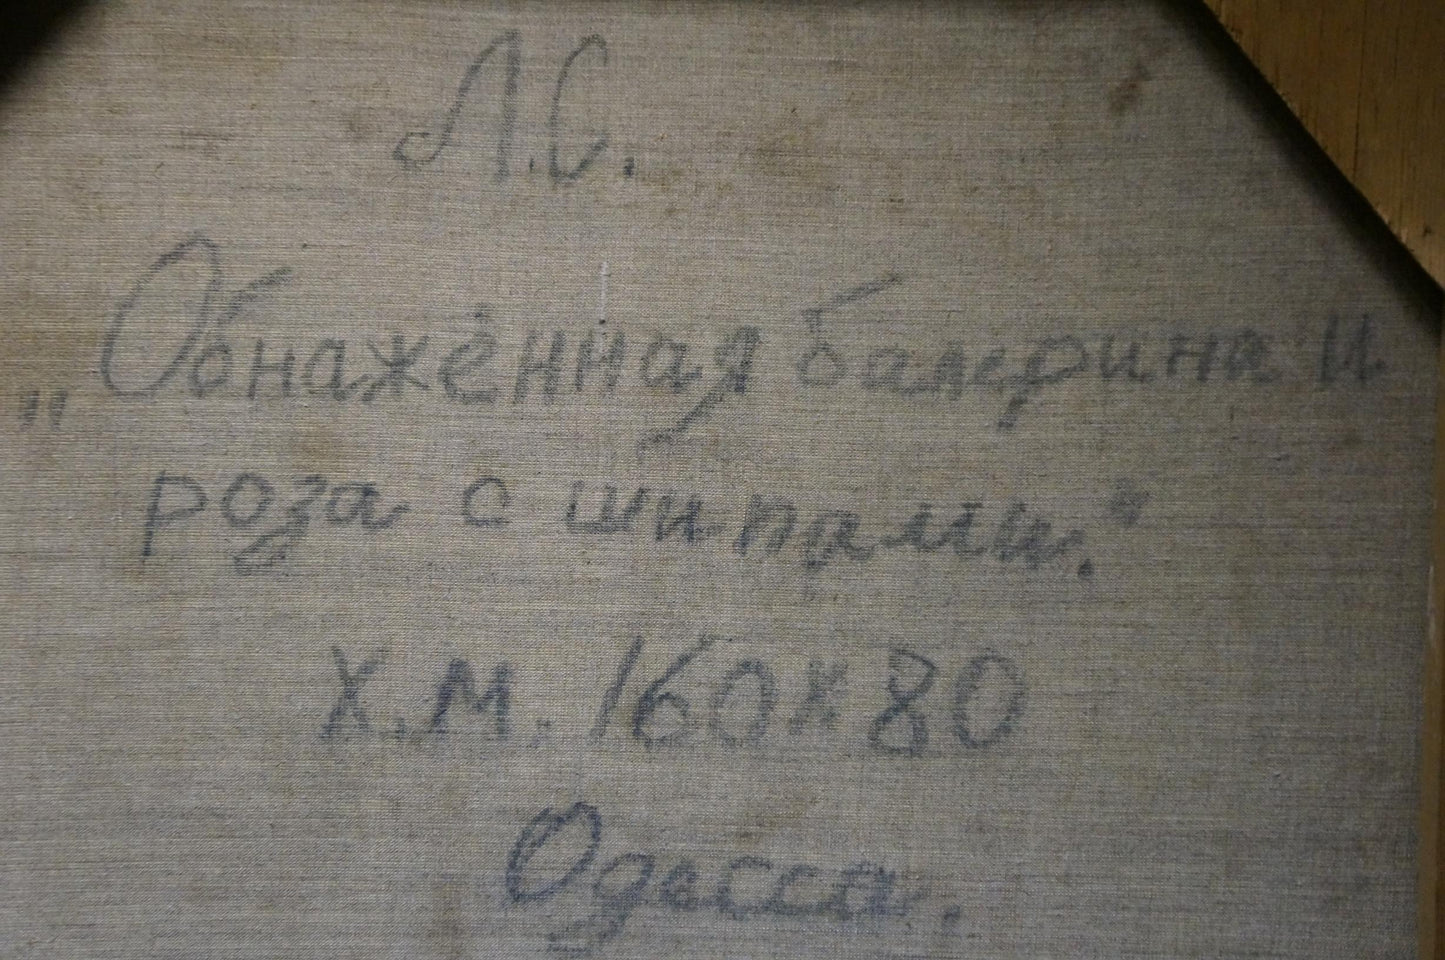 Л.С.
„Обнажённая балерина и
роза с шипами.“
Х.М. 160х80
Одесса.